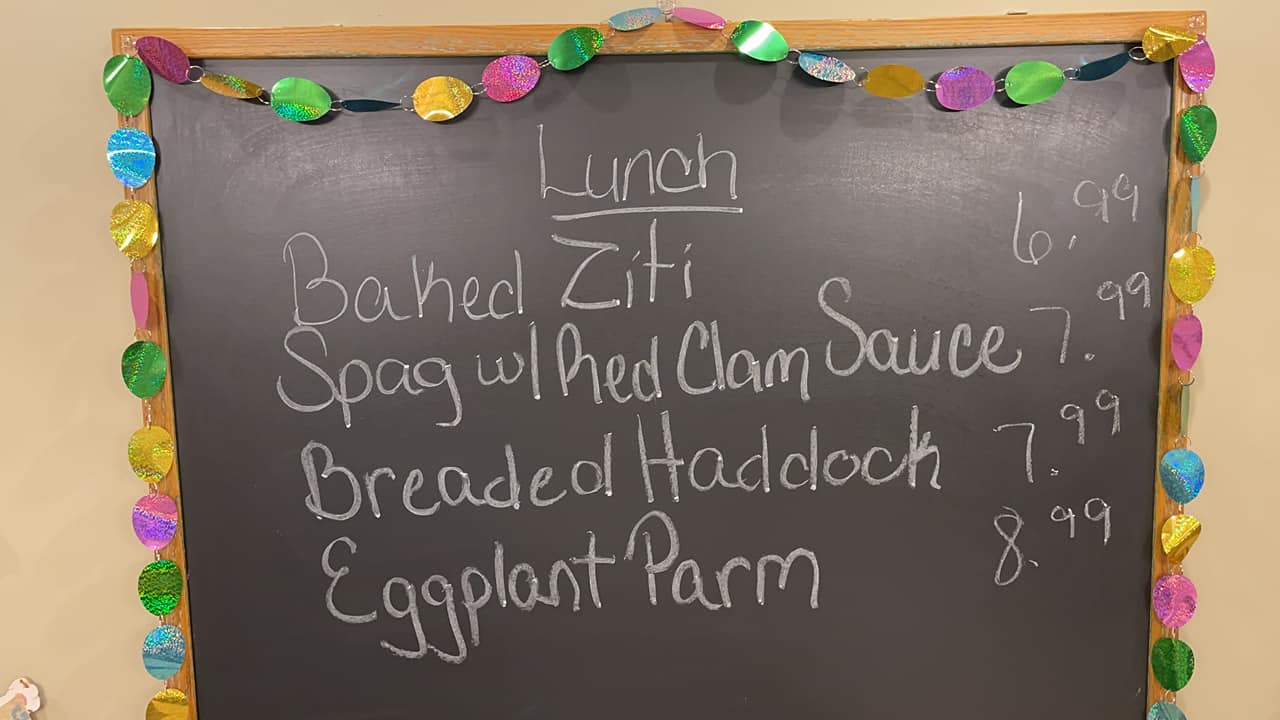 Lunch
Baked Ziti 6.99
Spag w/ Red Clam Sauce 7.99
Breaded Haddock 7.99
Eggplant Parm 8.99